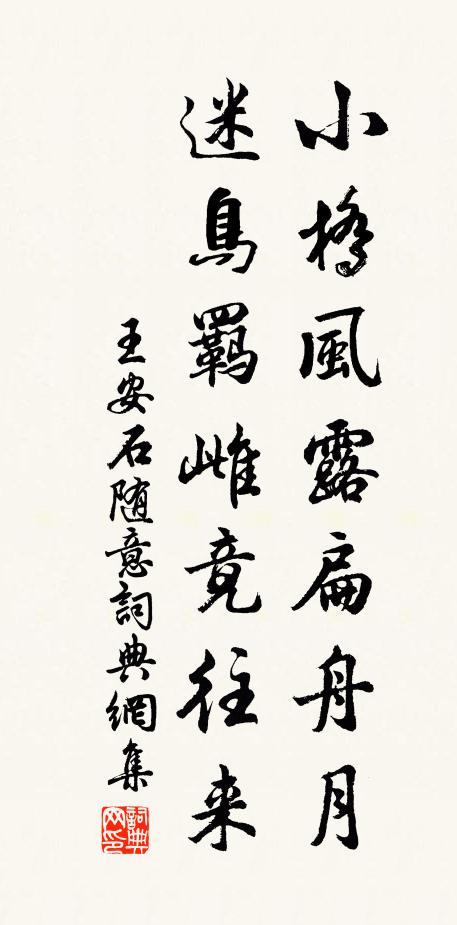 小橋風露扁舟月
迷鳥羈雌竟往来
王安石随意詞典網集
詞典网印